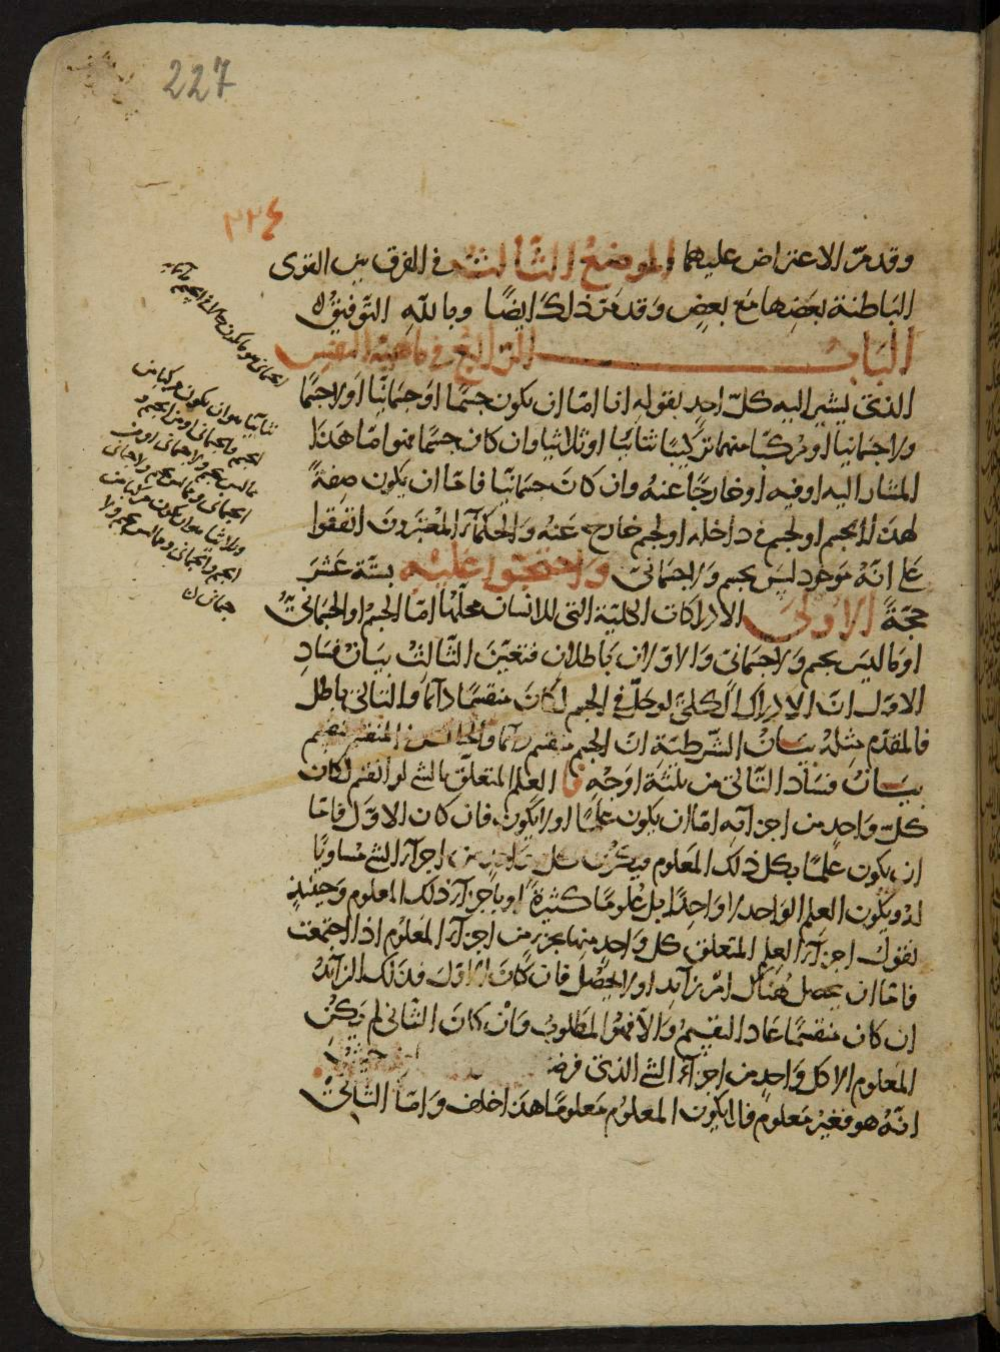 227
٢٢٤
وقد مرّ الاعتراض عليهما الموضع الثالث في الفرق بين القوى
الباطنة بعضها مع بعض وقد مرّ ذلك ايضًا وبالله التوفيق
الباب الرابع في ماهية النفس
الذي يشير اليه كلّ احد بقوله انا امّا ان يكون جسمًا او جسمانيًا او لا جسمًا
ولا جسمانيا او مركبًا منهما تركيبًا ثنائيًا او ثلاثيا وان كان جسمًا فهو امّا هذا
المشار اليه او فيه او خارجًا عنه وان كان جسمانيًا فامّا ان يكون صفةً
لهذا الجسم او لجسم في داخله او لجسم خارج عنه والحكماء المعتبرون اتفقوا
على انّه موجود ليس بجسم ولا جسماني واحتجّوا عليه بستة عشر
حجّةً الاولى الادراكات الكلية التي للانسان محلّها امّا الجسم او الجسماني
او ما ليس بجسم ولا جسماني والاوّلان باطلان فتعيّن الثالث بيان فساد
الاوّل انّ الادراك الكلي لو حلّ في الجسم لكان منقسمًا دائما والتالي باطل
فالمقدّم مثله بيان الشرطية انّ الجسم منقسم دائما والحال في المنقسم منقسم
بيان فساد التالي من ثلثة اوجه العلم المتعلّق بالشئ لو انقسم لكان
كلّ واحد من اجزائه امّا ان يكون علمًا او لا يكون فان كان الاوّل فامّا
ان يكون علمًا بكل ذلك المعلوم فيكون كل واحد من اجزاء الشئ مساويًا
له ويكون العلم الواحد لا واحدًا بل علومًا كثيرةً او باجزاء ذلك المعلوم وحينئذ
نقول اجزاء العلم المتعلق كل واحد منها بجزء من اجزاء المعلوم اذا اجتمعت
فامّا ان يحصل هناك امر زائد او لا يحصل فان كان الاوّل فذلك الزائد
ان كان منقسمًا عاد التقسيم والّا فهو المطلوب وان كان الثاني لم يكن
المعلوم الا كل واحد من اجزاء الشئ الذي فرض حيث
انّه هو فغير معلوم فلا يكون المعلوم معلومًا هذا خلف وامّا الثاني
ثنائيا هو ان يكون مركبا من
الجسم والجسماني او من الجسم و
ما ليس بجسم ولا جسماني او من
الجسماني وما ليس بجسم ولا جسماني
وثلاثيا هو ان يكون مركبا من
الجسم والجسماني وما ليس بجسم ولا
جسماني